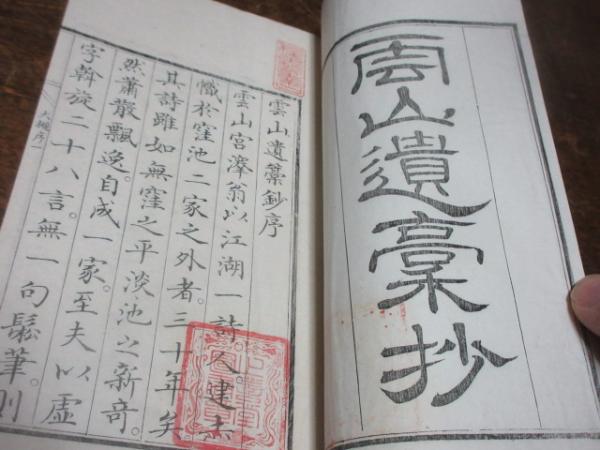 雲山遺稾抄
雲山遺稾鈔序
雲山宮澤翁以江湖一詩人建赤
幟於窪池二家之外者。三十年矣。
其詩雖如無窪之平淡池之新奇。
然蕭散飄逸。自成一家。至夫以虛
字斡旋二十八言。無一句鬆筆。則
大槻序一